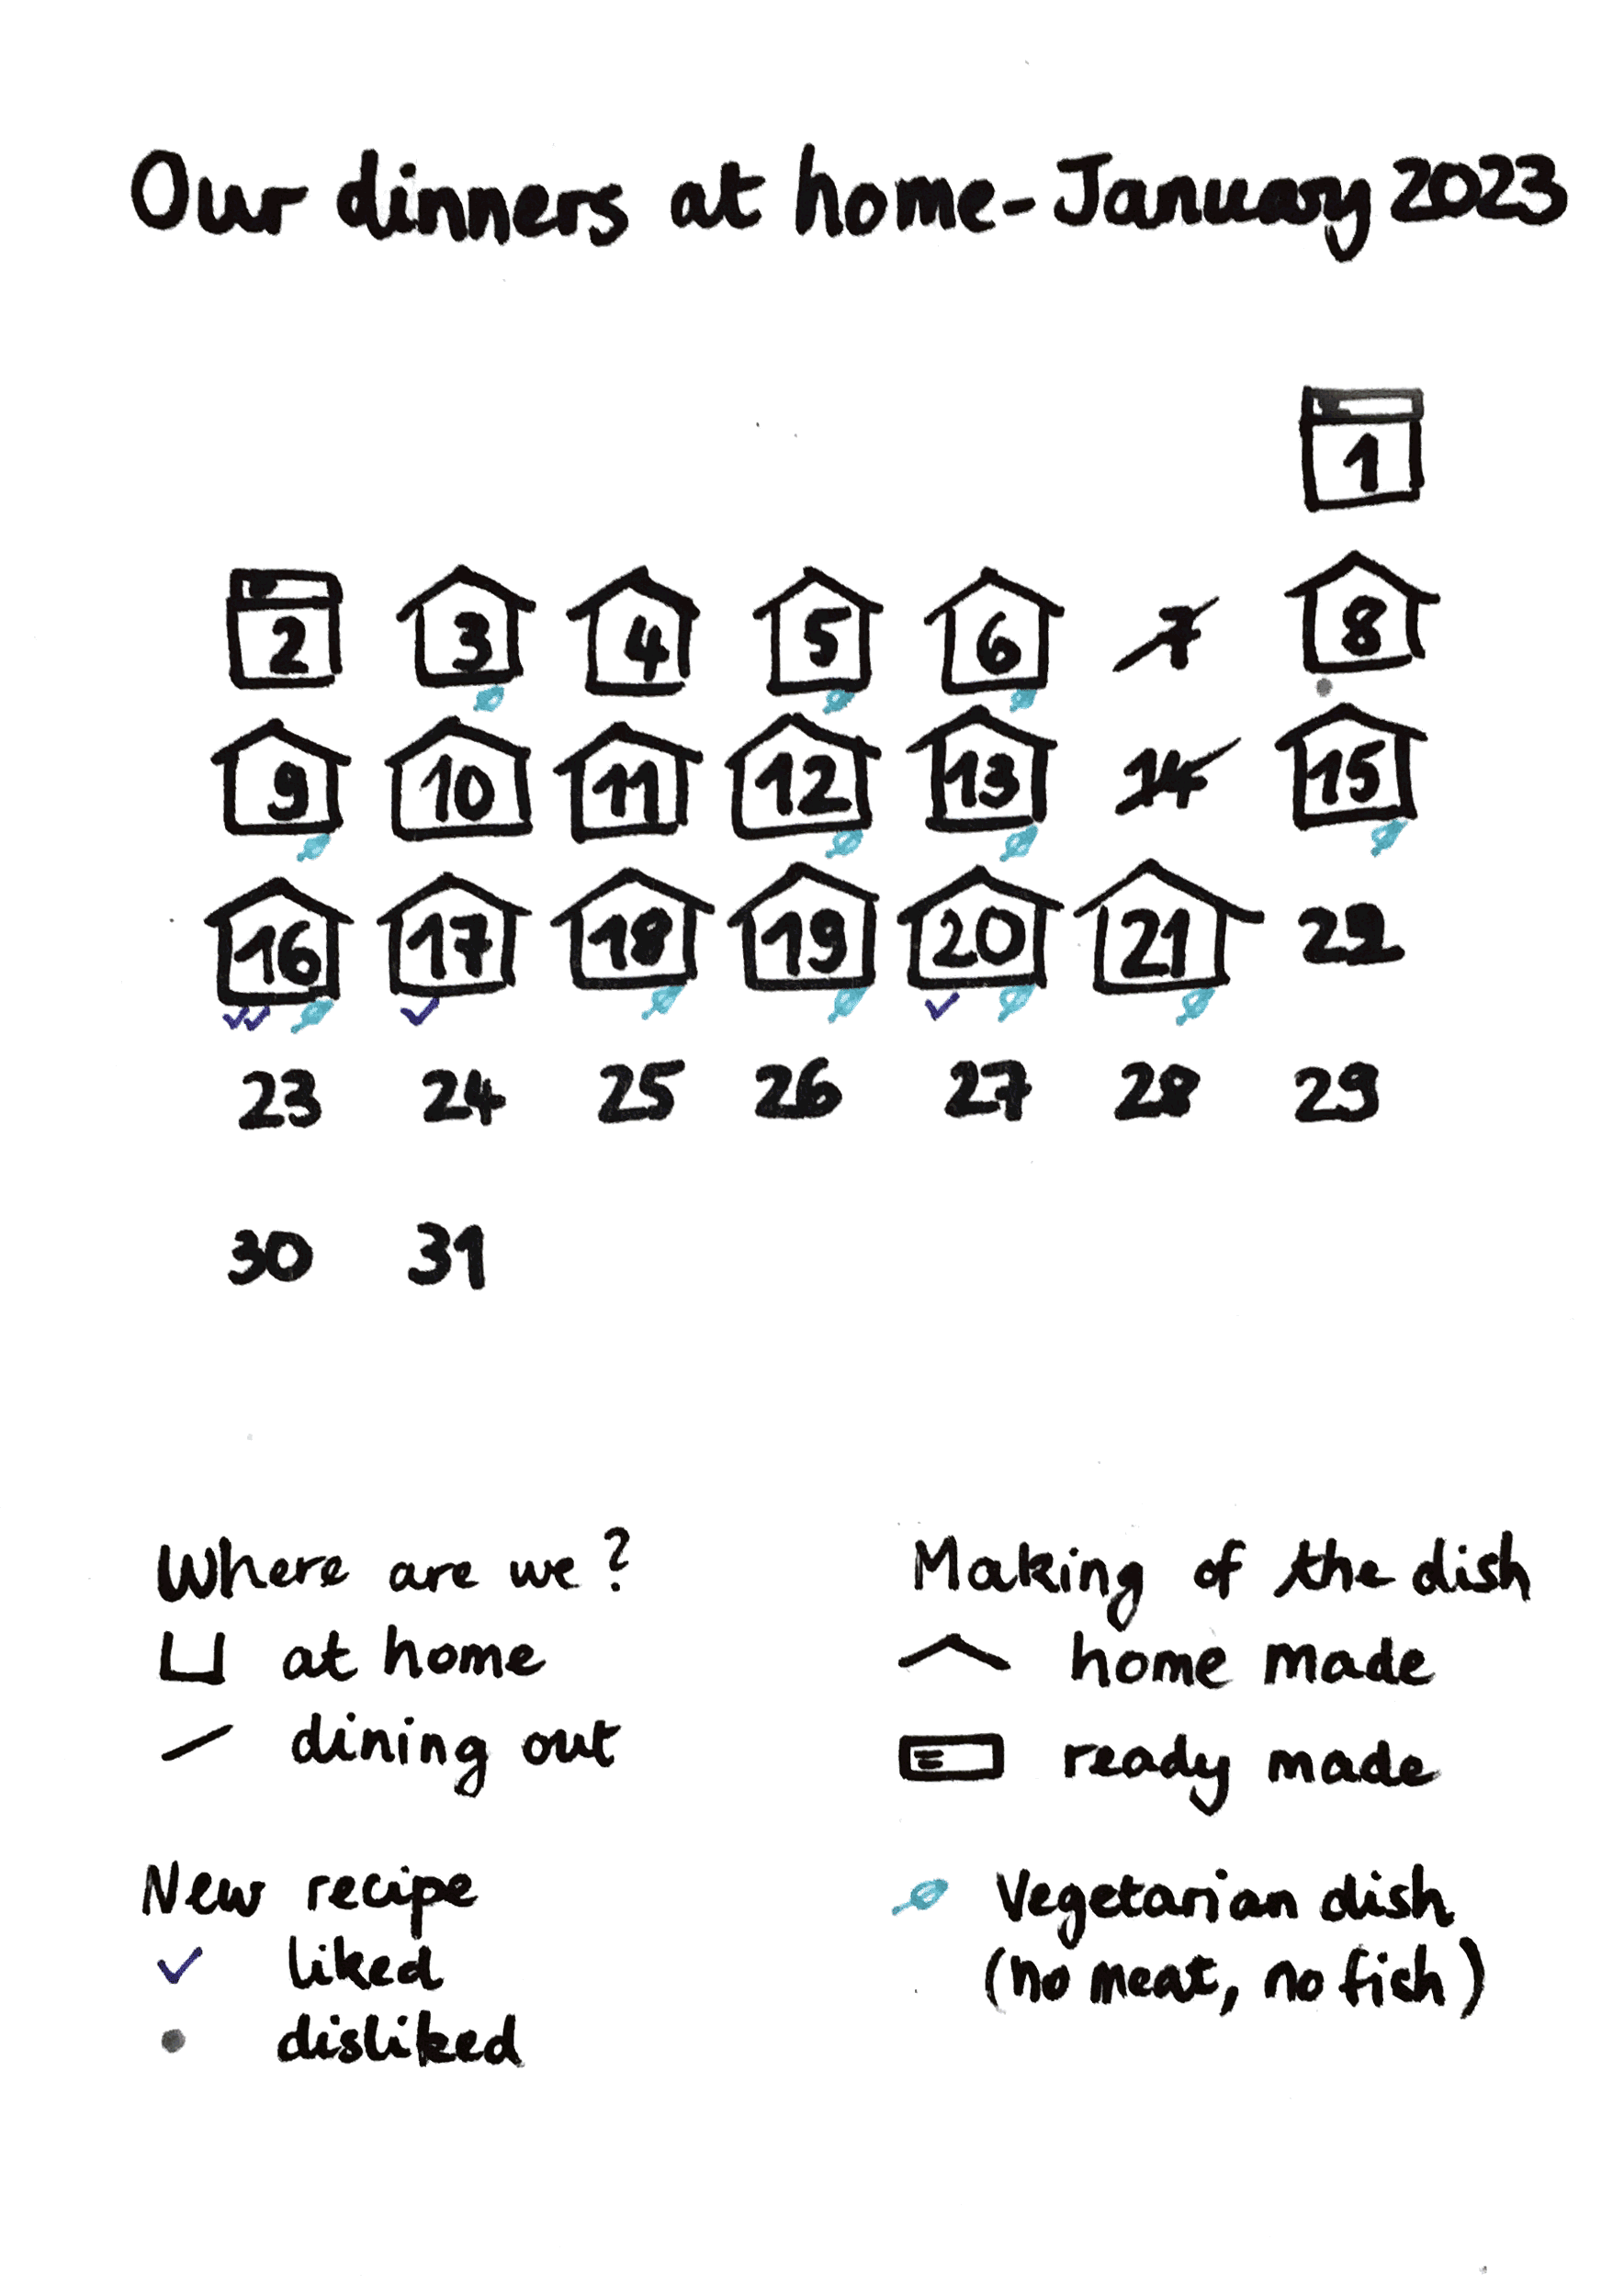 Our dinners at home - January 2023
1
2 3 4 5 6 7 8
9 10 11 12 13 14 15
16 17 18 19 20 21 22
23 24 25 26 27 28 29
30 31
Where are we?
at home
dining out
Making of the dish
home made
ready made
New recipe
liked
disliked
Vegetarian dish
(no meat, no fish)